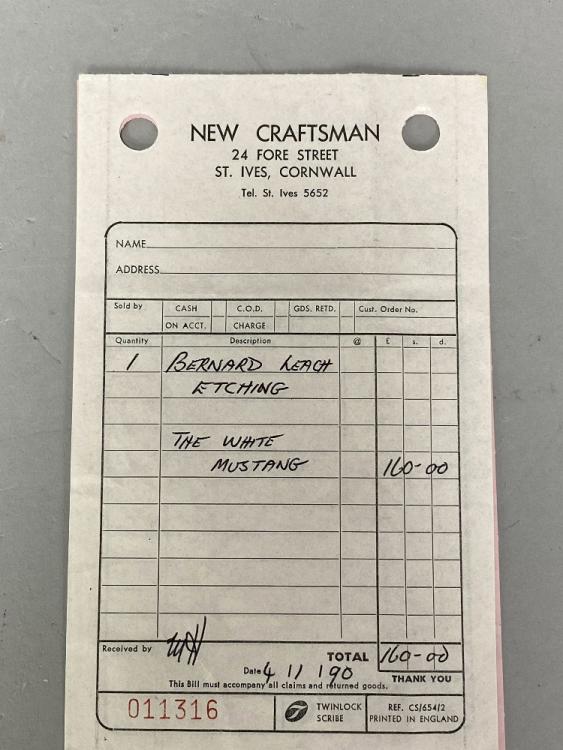 NEW CRAFTSMAN
24 FORE STREET
ST. IVES, CORNWALL
Tel. St. Ives 5652
NAME
ADDRESS
Sold by CASH C.O.D. GDS. RETD. Cust. Order No.
ON ACCT. CHARGE
Quantity Description @ £ s. d.
1 BERNARD LEACH
ETCHING
THE WHITE
MUSTANG 160-00
Received by TOTAL 160-00
Date 4 11 190 THANK YOU
This Bill must accompany all claims and returned goods.
011316 TWINLOCK SCRIBE REF. CS/654/2
PRINTED IN ENGLAND